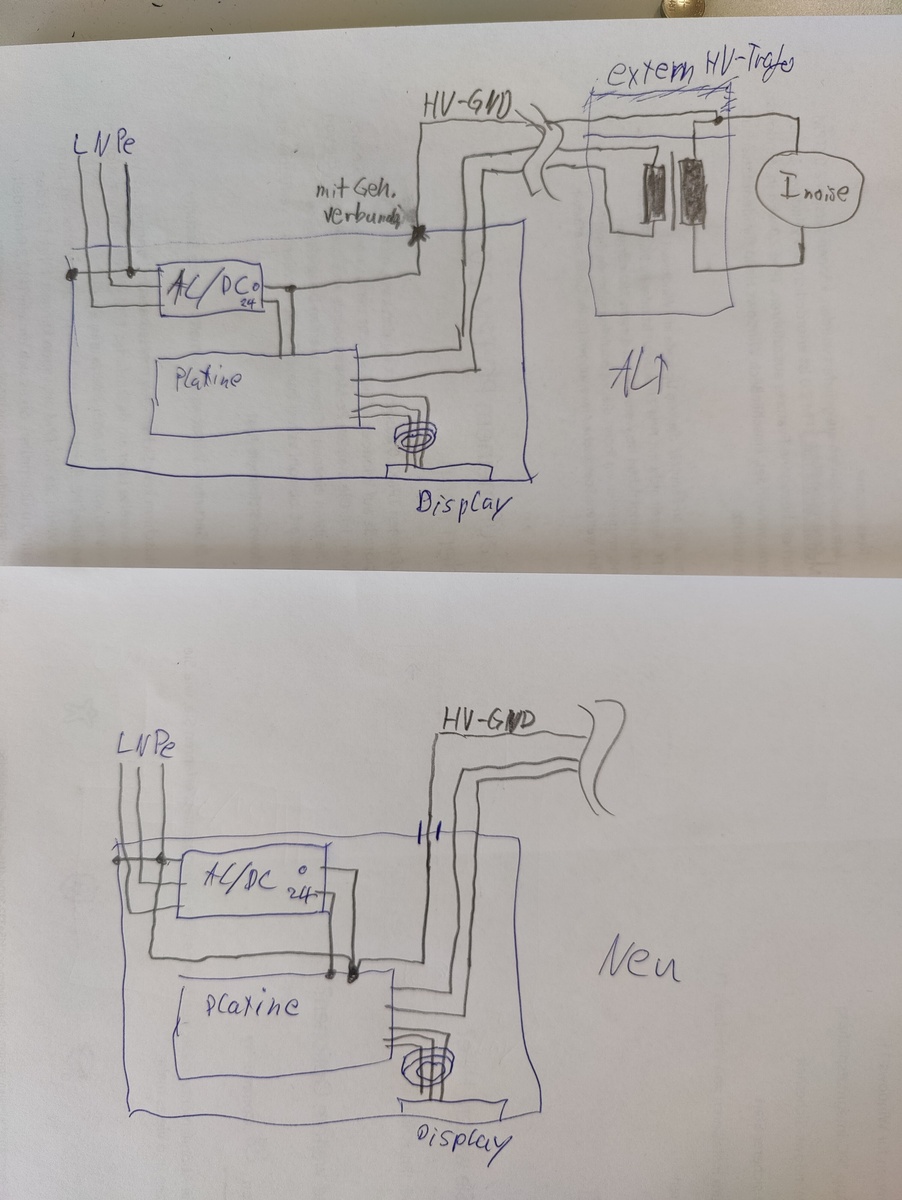 extern HV-Trafo
HV-GND
L N Pe
mit Geh.
I noise
AC/DC 0
24
Platine
ALT
Display
HV-GND
L N Pe
AC/DC 0
24
Neu
Platine
Display